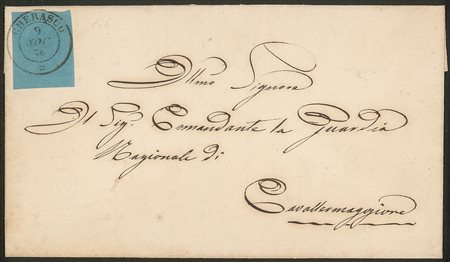 CHERASCO
9
NOV
Illmo Signore
Il Sig. Comandante la Guardia
Nazionale di
Cavallermaggiore